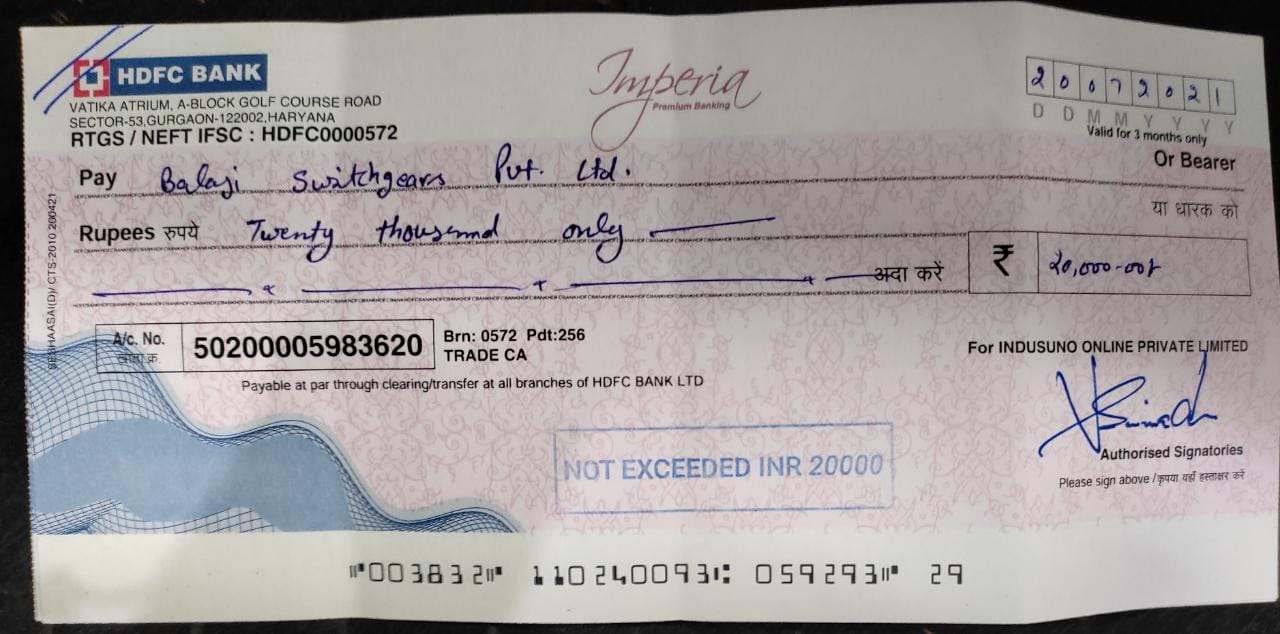 HDFC BANK
VATIKA ATRIUM, A-BLOCK GOLF COURSE ROAD
SECTOR-53,GURGAON-122002,HARYANA
RTGS / NEFT IFSC : HDFC0000572
Imperia
Premium Banking
20072021
D D M M Y Y Y Y
Valid for 3 months only
Pay Balaji Switchgears Pvt. Ltd. Or Bearer
या धारक को
Rupees रुपये Twenty thousand only
अदा करें ₹ 20,000-00/-
CTS-2010 200421
A/c. No. 50200005983620 Brn: 0572 Pdt:256
खाता क्र. TRADE CA
Payable at par through clearing/transfer at all branches of HDFC BANK LTD
For INDUSUNO ONLINE PRIVATE LIMITED
NOT EXCEEDED INR 20000
Authorised Signatories
Please sign above / कृपया यहाँ हस्ताक्षर करें
⑈003832⑈ 110240093⑆ 059293⑈ 29